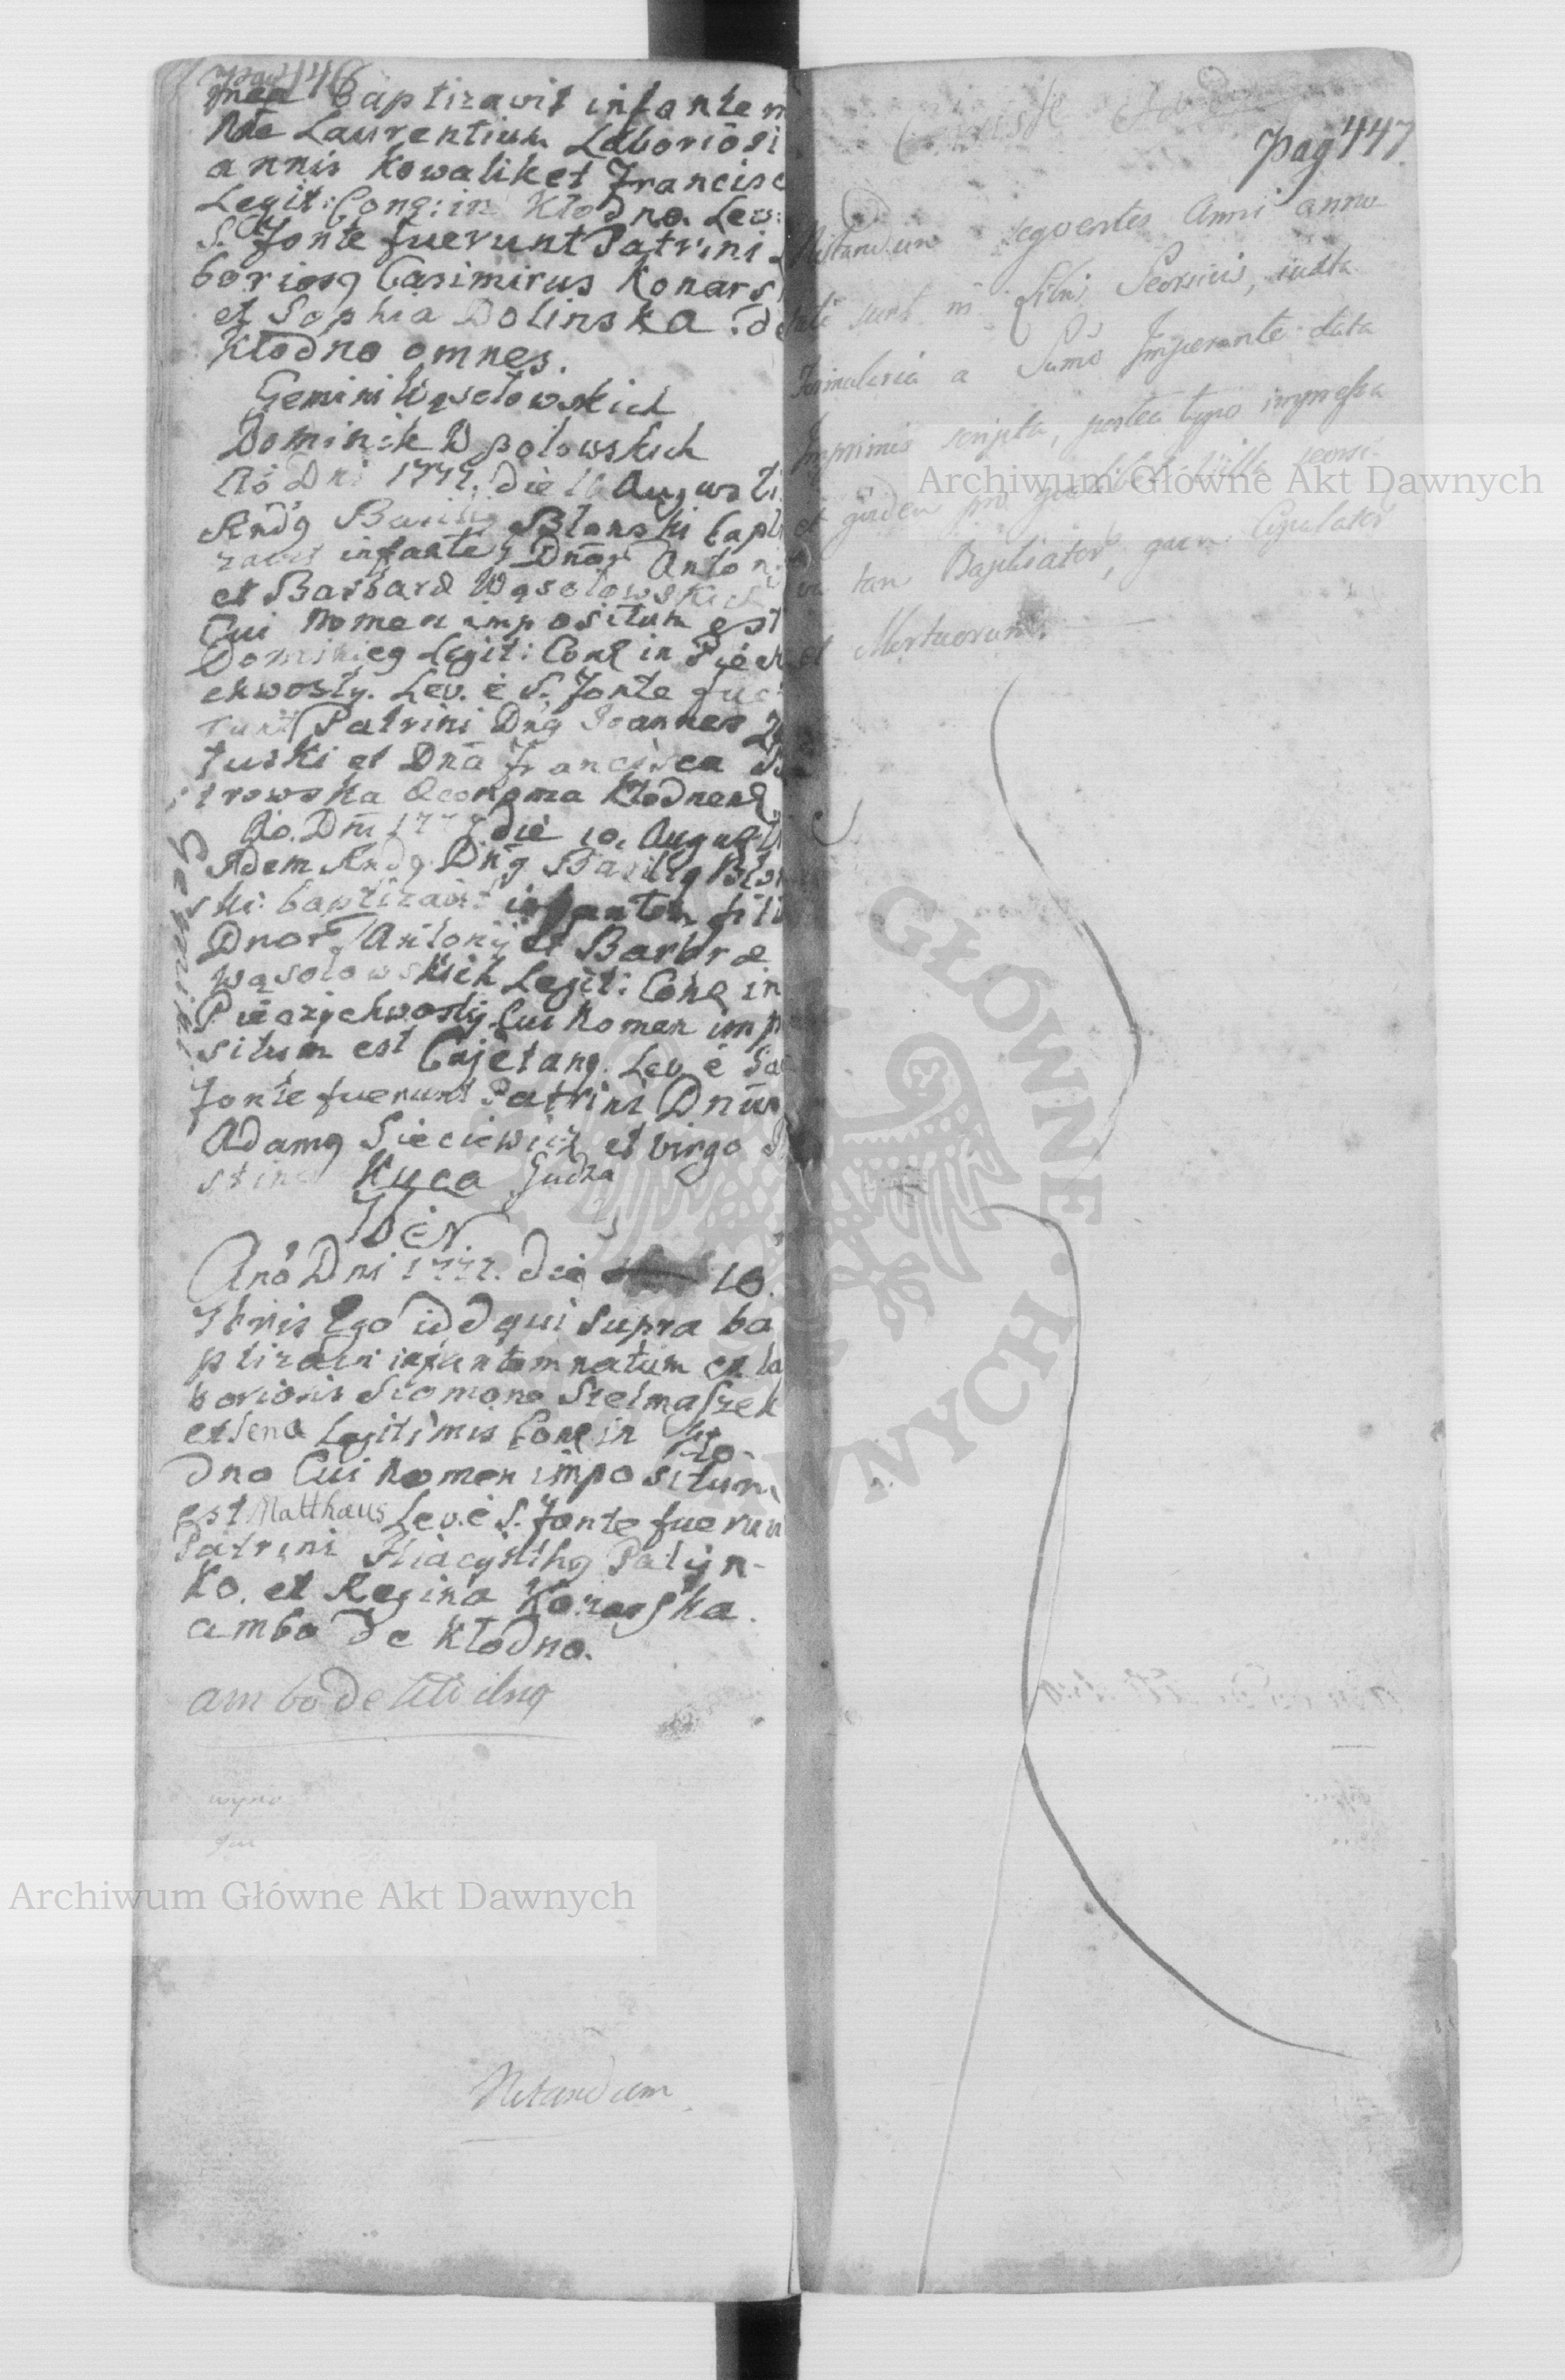 Pag 146
mea Baptizavit infantem
Nõe Laurentium Laboriosi
annis Kowalik et Francisc
Legit: Conq: in Kłodno. Lev:
S. Fonte fuerunt Patrini
boriosq Casimirus Konars
et Sophia Dolinska de
Kłodno omnes.
Gemini Wąsolowskich
Dominik Wąsolowskich
Aõ Dni 1777. die 10 Augusti
Rndq Basiliq Blonski bapti
zavit infantē Dnor Anton
et Barbaræ Wąsolowskich
Cui Nomen impositum est
Dominicq Legit: Conq in
chwosty. Lev. è S. Fonte fue
runt Patrini Dnq Joannes
tuski et Dna Francisca
trowska Oeconoma Kłodnens
Gemini
Ao. Dni 1777 die 10. Augusti
Idem Rndq Dnq Basiliq Blon
ski baptizavit infantem filiu
Dnor Antonij et Barbræ
Wąsolowskich Legit: Conq in
Pieczychwosty Cui Nomen impo
situm est Cajetanq. Lev è Sa
Fonte fuerunt Patrini Dnus
Adamq Sieciewicz et virgo
stina Kuca
Ano Dni 1777. die 10.
7bris Ego idd qui supra ba
ptizavi infantem natum ex la
boriosis Siomono Stelmaszek
et Jena Legitimis Conq in Kło
dno Cui Nomen impositum
est Matthæus Lev. è S. Fonte fuerun
Patrini Hiacynthq Patyn-
ko. et Regina Konarska.
ambo de Kłodno.
ambo de
Notandum
Pag 447.
Notandum seqventes Anni anno
tati sunt in Libris Seorsivis, iuxta
Formularia a Sumo Imperante data
Imprimis scripta, postea typo impressa
et quidem pro qualibet Villa seorsi
va tam Baptisator, quam Copulator
et Mortuorum.
Archiwum Główne Akt Dawnych
Archiwum Główne Akt Dawnych
GŁÓWNE
WNYCH